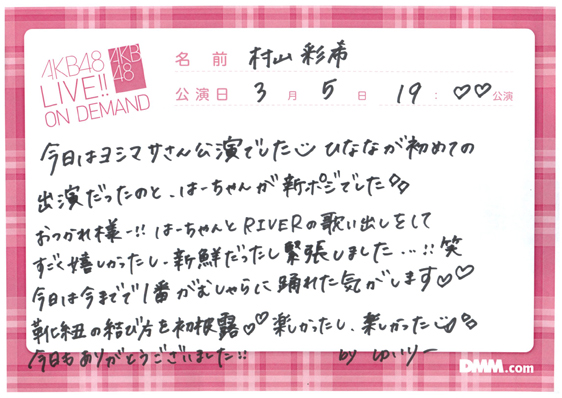 AKB48
LIVE!!
ON DEMAND
AKB
48
名前 村山彩希
公演日 3月5日 19:♡♡公演
今日はヨシマサさん公演でした ひななが初めての
出演だったのと、はーちゃんが新ポジでした
おつかれ様ー!! はーちゃんとRIVERの歌い出しをして
すごく嬉しかったし、新鮮だったし緊張しました...!!笑
今日は今までで1番がむしゃらに踊れた気がします♡♡
靴紐の結び方を初披露♡♡ 楽しかったし、楽しかった
今日もありがとうございました!! by ゆいりー
DMM.com